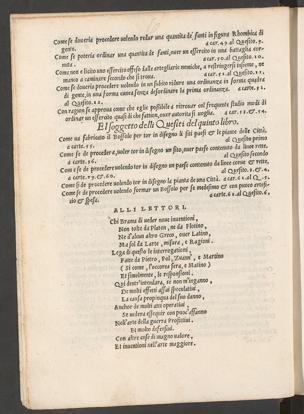 Come se doueria procedere uolendo redur una quantita de fanti in figura Rhombica di
a car. 49 al Quesito. 9.
Come se poteria ordinar una quantita de fanti, ouer un essercito in una battaglia cor-
nuta. a car. 50. al Quesito. 10.
Come non è licito uno essercito offeso dalle artegliarie nemiche, a restringersi insieme, ne
manco a caminare secondo che si troua. a car. 51. al Quesito. 11.
Come se doueria procedere uolendo in un subito ridure una ordinanza in forma quadra
di gente, in una forma cunea senza desordinare la prima ordinanza. a carte. 52.
al Quesito. 12.
Con ragion se approua come che eglie possibile a ritrouar col frequente studio modi di
ordinar un essercito, quasi di che fattion, ouer autorita si uoglia. a car. 53. & 54.
El soggetto delli Quesiti del quinto libro.
Come ua fabricato il Bossolo per tor in disegno li siti paesi & le piante delle Città.
a carte. 55. al Quesito primo
Come se de procedere, uolendo tor in disegno un sito, ouer paese contenuto da linee rette.
a carte. 56. al Quesito secondo
Come se de procedere uolendo tor in disegno un paese contenuto da linee corue & rette.
a carte. 59. & 60. al Quesito. 3. & 4.
Come si de procedere uolendo tor in disegno la pianta de una Città. a car. 61 al Q. 5.
Come se de procedere uolendo formar un Bossolo per se medesimo & con pocco artifi-
cio & spesa. a carte. 62 al Quesito. 6.
ALLI LETTORI.
Chi Brama di ueder noue inuentioni,
Non tolte da Platon, ne da Plotino,
Ne d'alcun altro Greco, ouer Latino,
Ma sol da Larte, misura, e Ragioni.
Lega di questo le interrogationi,
Fatte da Pietro, Pol, Zuann', e Martino
(Si come, l'occorea sera, e Matino)
Et simelmente, le responsioni.
Qui dentr'intendara, se non m'inganno,
De molti effetti assai speculatiui,
La causa propinqua del suo danno,
Anchor de molti atti operatiui,
Se uedera essequir con pocc' affanno
Nell'arte della guerra Profittiui.
Et molto defensiui.
Con altre cose di magno ualore,
Et inuentioni nell'arte maggiore.